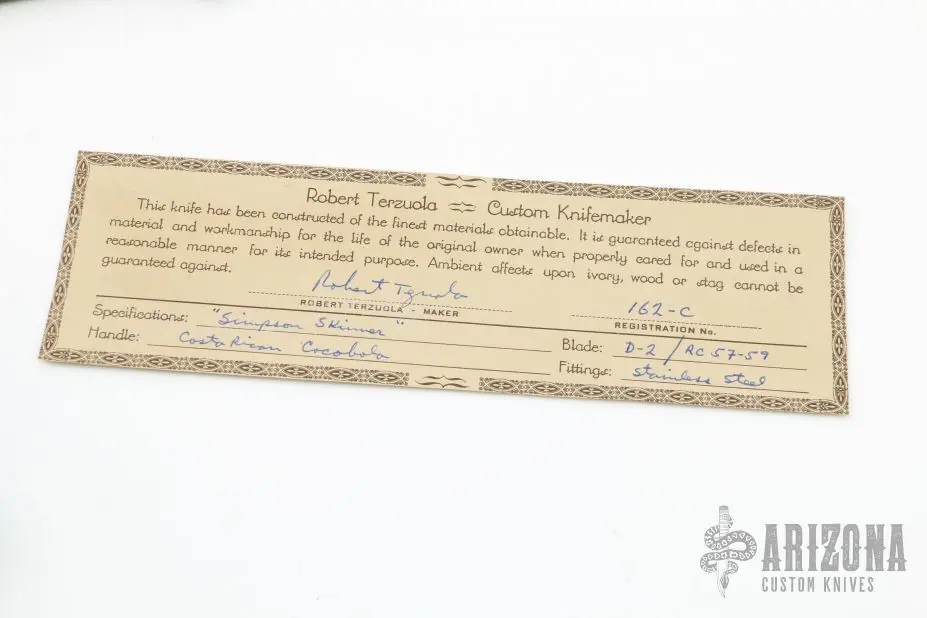 Robert Terzuola Custom Knifemaker
This knife has been constructed of the finest materials obtainable. It is guaranteed against defects in
material and workmanship for the life of the original owner when properly cared for and used in a
reasonable manner for its intended purpose. Ambient affects upon ivory, wood or stag cannot be
guaranteed against.
Robert Terzuola
ROBERT TERZUOLA - MAKER
162-C
REGISTRATION No.
Specifications: "Simpson Skinner"
Blade: D-2 / RC 57-59
Handle: Costa Rican Cocobola
Fittings: Stainless Steel
ARIZONA
CUSTOM KNIVES